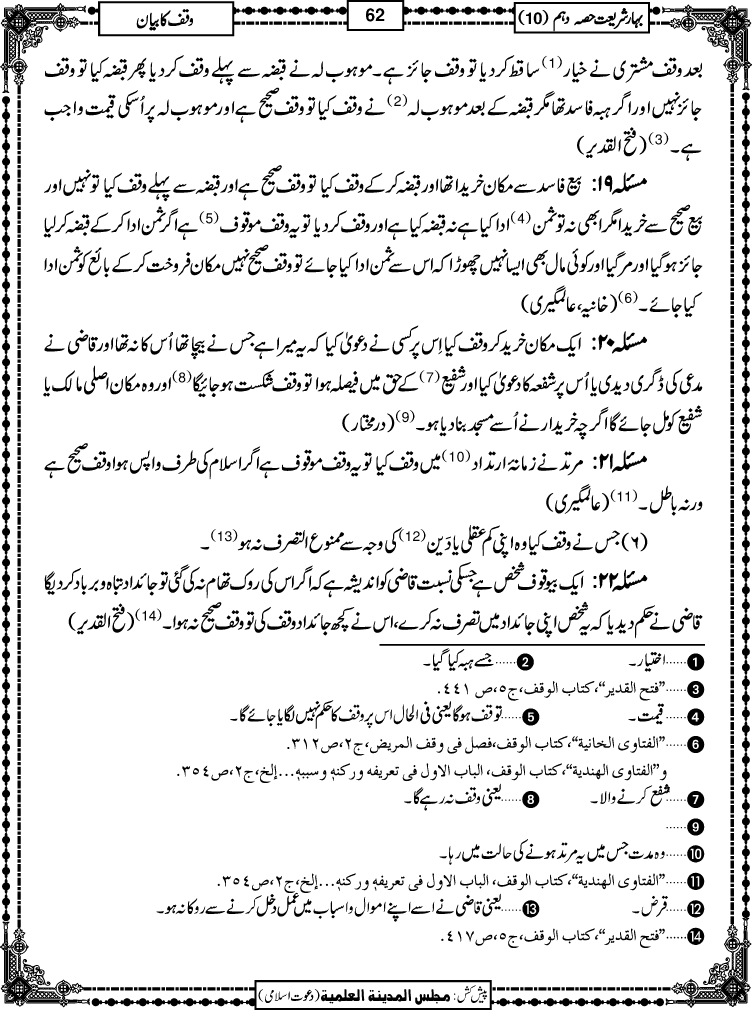 بہارِشریعت حصہ دہم (10)
62
وقف کا بیان
بعد وقف مشتری نے خیار (1) ساقط کردیا تو وقف جائز ہے۔ موہوب لہ نے قبضہ سے پہلے وقف کردیا پھر قبضہ کیا تو وقف
جائز نہیں اور اگر ہبہ فاسد تھا مگر قبضہ کے بعد موہوب لہ (2) نے وقف کیا تو وقف صحیح ہے اور موہوب لہ پر اُسکی قیمت واجب
ہے۔ (3) (فتح القدیر)
مسئلہ ۱۹: بیع فاسد سے مکان خریدا تھا اور قبضہ کرکے وقف کیا تو وقف صحیح ہے اور قبضہ سے پہلے وقف کیا تو نہیں اور
بیع صحیح سے خریدا مگر ابھی نہ تو ثمن (4) ادا کیا ہے نہ قبضہ کیا ہے اور وقف کردیا تو یہ وقف موقوف (5) ہے اگر ثمن ادا کرکے قبضہ کرلیا
جائز ہوگیا اور مرگیا اور کوئی مال بھی ایسا نہیں چھوڑا کہ اس سے ثمن ادا کیا جائے تو وقف صحیح نہیں مکان فروخت کرکے بائع کو ثمن ادا
کیا جائے۔ (6) (خانیہ، عالمگیری)
مسئلہ ۲۰: ایک مکان خرید کر وقف کیا اِس پر کسی نے دعویٰ کیا کہ یہ میرا ہے جس نے بیچا تھا اُس کا نہ تھا اور قاضی نے
مدعی کی ڈگری دیدی یا اُس پر شفعہ کا دعویٰ کیا اور شفیع (7) کے حق میں فیصلہ ہوا تو وقف شکست ہوجائیگا (8) اور وہ مکان اصلی مالک یا
شفیع کو مل جائے گا اگرچہ خریدار نے اُسے مسجد بنا دیا ہو۔ (9) (درمختار)
مسئلہ ۲۱: مرتد نے زمانۂ ارتداد (10) میں وقف کیا تو یہ وقف موقوف ہے اگر اسلام کی طرف واپس ہوا وقف صحیح ہے
ورنہ باطل۔ (11) (عالمگیری)
(۶) جس نے وقف کیا وہ اپنی کم عقلی یا دَین (12) کی وجہ سے ممنوع التصرف نہ ہو (13)۔
مسئلہ ۲۲: ایک بیوقوف شخص ہے جسکی نسبت قاضی کو اندیشہ ہے کہ اگر اس کی روک تھام نہ کی گئی تو جائداد تباہ و برباد کردیگا
قاضی نے حکم دیدیا کہ یہ شخص اپنی جائداد میں تصرف نہ کرے، اس نے کچھ جائداد وقف کی تو وقف صحیح نہ ہوا۔ (14) (فتح القدیر)
1 ......اختیار۔ 2 ......جسے ہبہ کیا گیا۔
3 ......”فتح القدیر“، کتاب الوقف، ج۵، ص ۴۴۱.
4 ......قیمت۔ 5 ......توقف ہوگا یعنی فی الحال اس پر وقف کا حکم نہیں لگایا جائے گا۔
6 ......”الفتاوی الخانیة“، کتاب الوقف، فصل فی وقف المریض، ج۲، ص۳۱۲.
و”الفتاوی الهندیة“، کتاب الوقف، الباب الاول فی تعریفه ورکنه وسببه...إلخ، ج۲، ص۳۵۴.
7 ......شفع کرنے والا۔ 8 ......یعنی وقف نہ رہے گا۔
9 ......
10 ......وہ مدت جس میں یہ مرتد ہونے کی حالت میں رہا۔
11 ......”الفتاوی الهندیة“، کتاب الوقف، الباب الاول فی تعریفه ورکنه...إلخ، ج۲، ص۳۵۴.
12 ......قرض۔ 13 ......یعنی قاضی نے اسے اپنے اموال و اسباب میں عمل دخل کرنے سے روکا نہ ہو۔
14 ......”فتح القدیر“، کتاب الوقف، ج۵، ص۴۱۷.
پیش کش: مجلس المدینة العلمیة (دعوت اسلامی)